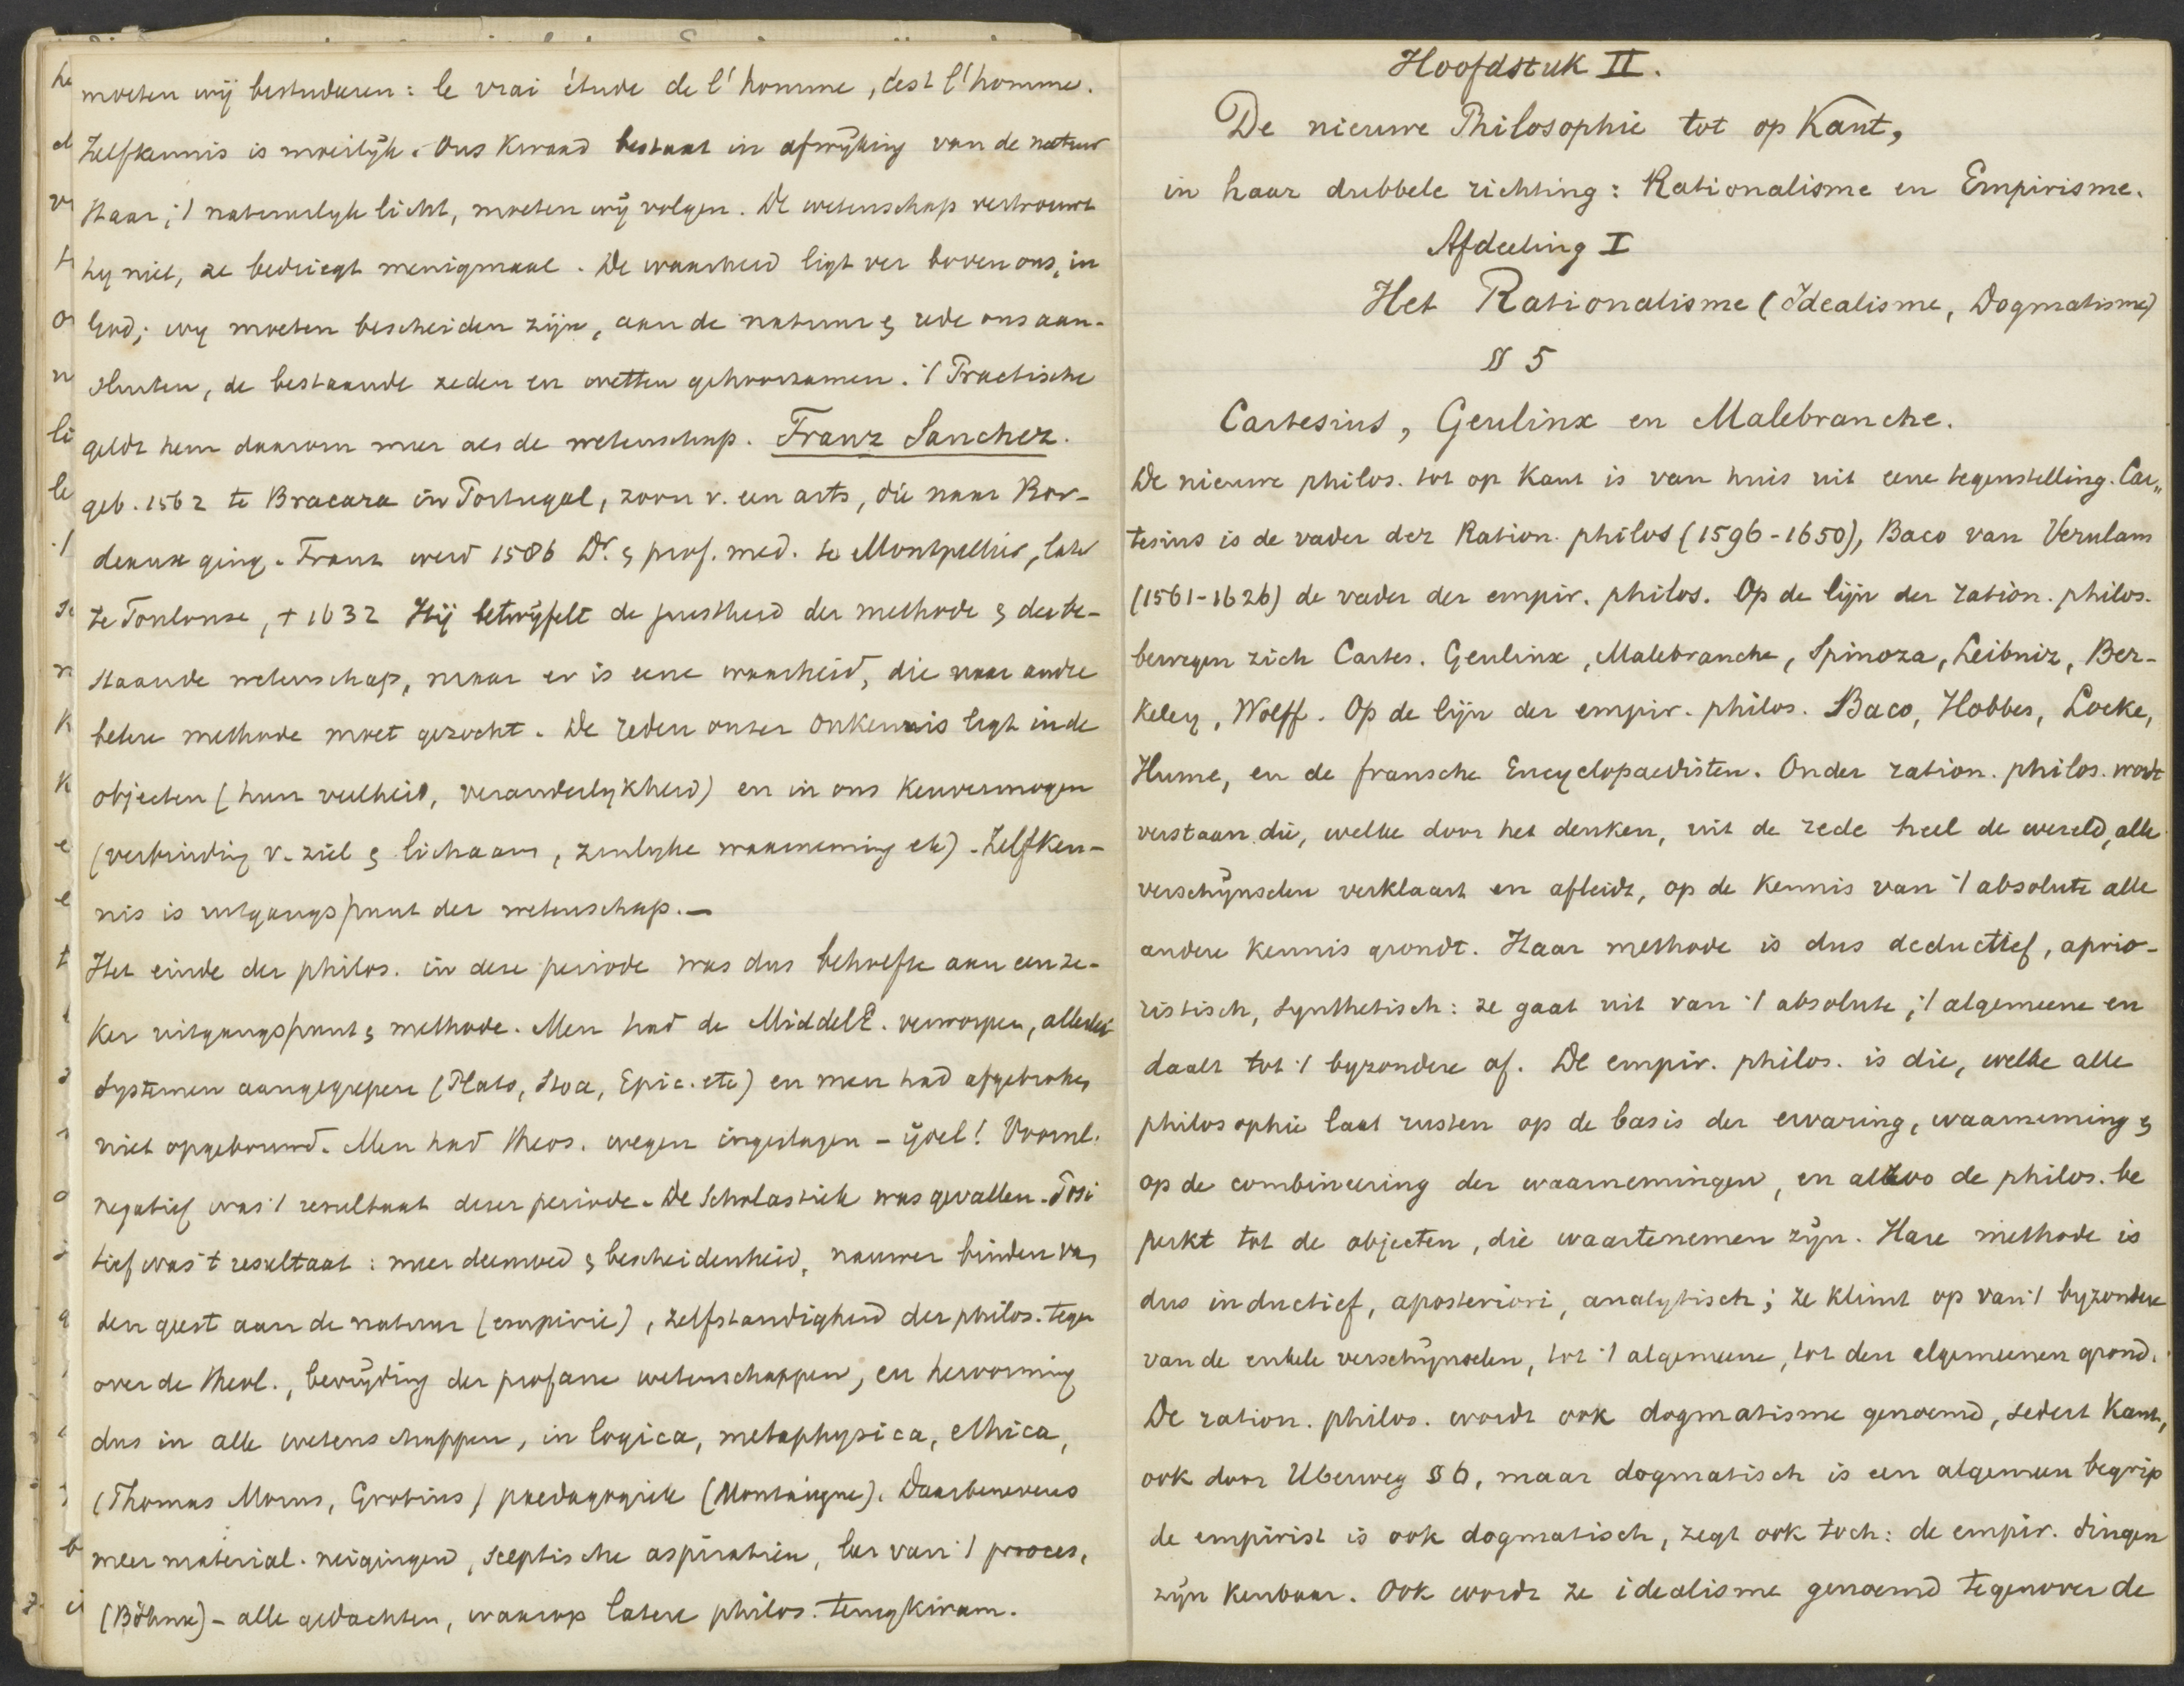 moeten wij bestudeeren: le vrai étude de l'homme, c'est l'homme.
Zelfkennis is moeilijk. Ons kwaad bestaat in afwijking van de natuur
Haar, 't natuurlijk licht, moeten wij volgen. De wetenschap vertrouwt
hy niet, ze bedriegt menigmaal. De waarheid ligt ver boven ons, in
God; wy moeten bescheiden zijn, aan de natuur & rede ons aan-
sluiten, de bestaande zeden en wetten gehoorzamen. 't Practische
geldt hem daarom meer als de wetenschap. Franz Sanchez.
geb. 1562 te Bracara in Portugal, zoon v. een arts, die naar Bor-
deaux ging. Franz werd 1586 Dr. & prof. med. te Montpellier, later
te Toulouse, † 1632 Hij betwijfelt de juistheid der methode & der be-
staande wetenschap, maar er is eene waarheid, die naar andre
betere methode moet gezocht. De reden onzer onkennis ligt in de
objecten (hun veelheid, veranderlykheid) en in ons kenvermogen
(verbinding v. ziel & lichaam, zinlyke waarneming etc). Zelfken-
nis is uitgangspunt der wetenschap.—
Het einde der philos. in deze periode was dus behoefte aan een ze-
ker uitgangspunt & methode. Men had de MiddelE. verworpen, allerlei
systemen aangegrepen (Plato, Stoa, Epic. etc) en men had afgebroken
niet opgebouwd. Men had theos. wegen ingeslagen – ijdel! Vooral.
negatief was 't resultaat dezer periode. De Scholastiek was gevallen. Posi
tief was 't resultaat: meer deemoed & bescheidenheid, nauwer binden van
den geest aan de natuur (empirie), zelfstandigheid der philos. tegen
over de theol., bevrijding der profane wetenschappen, en hervorming
dus in alle wetenschappen, in logica, metaphysica, ethica,
(Thomas Morus, Grotius) paedagogiek (Montaigne). Daarbenevens
meer material. neigingen, sceptische aspiratien, leer van 't proces,
(Böhme) – alle gedachten, waarop latere philos. terugkwam.
Hoofdstuk II.
De nieuwe Philosophie tot op Kant,
in haar dubbele richting: Rationalisme en Empirisme.
Afdeeling I
Het Rationalisme (Idealisme, Dogmatisme)
§ 5
Cartesius, Geulinx en Malebranche.
De nieuwe philos. tot op Kant is van huis uit eene tegenstelling. Car„
tesius is de vader der Ration. philos (1596-1650), Baco van Verulam
(1561-1626) de vader der empir. philos. Op de lijn der ration. philos.
bewegen zich Cartes. Geulinx, Malebranche, Spinoza, Leibniz, Ber-
keley, Wolff. Op de lijn der empir. philos. Baco, Hobbes, Locke,
Hume, en de fransche Encyclopaedisten. Onder ration. philos. wordt
verstaan die, welke door het denken, uit de rede heel de wereld, alle
verschijnselen verklaart en afleidt, op de kennis van 't absolute alle
andere kennis grondt. Haar methode is dus deductief, aprio-
ristisch, synthetisch: ze gaat uit van 't absolute, 't algemeene en
daalt tot 't byzondere af. De empir. philos. is die, welke alle
philosophie laat rusten op de basis der ervaring, waarneming &
op de combineering der waarnemingen, en alzoo de philos. be
perkt tot de objecten, die waartenemen zijn. Hare methode is
dus inductief, aposteriori, analytisch; ze klimt op van 't byzondere
van de enkele verschijnselen, tot 't algemeene, tot den algemeenen grond.
De ration. philos. wordt ook dogmatisme genoemd, sedert Kant,
ook door Uberweg § 6, maar dogmatisch is een algemeen begrip
de empirist is ook dogmatisch, zegt ook toch: de empir. dingen
zijn kenbaar. Ook wordt ze idealisme genoemd tegenover de